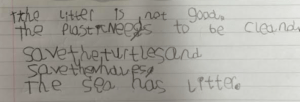 the litter is not good.
the plasticNeeds to be cleand
savetheturtlesand
savethewaves,
The sea has litter.